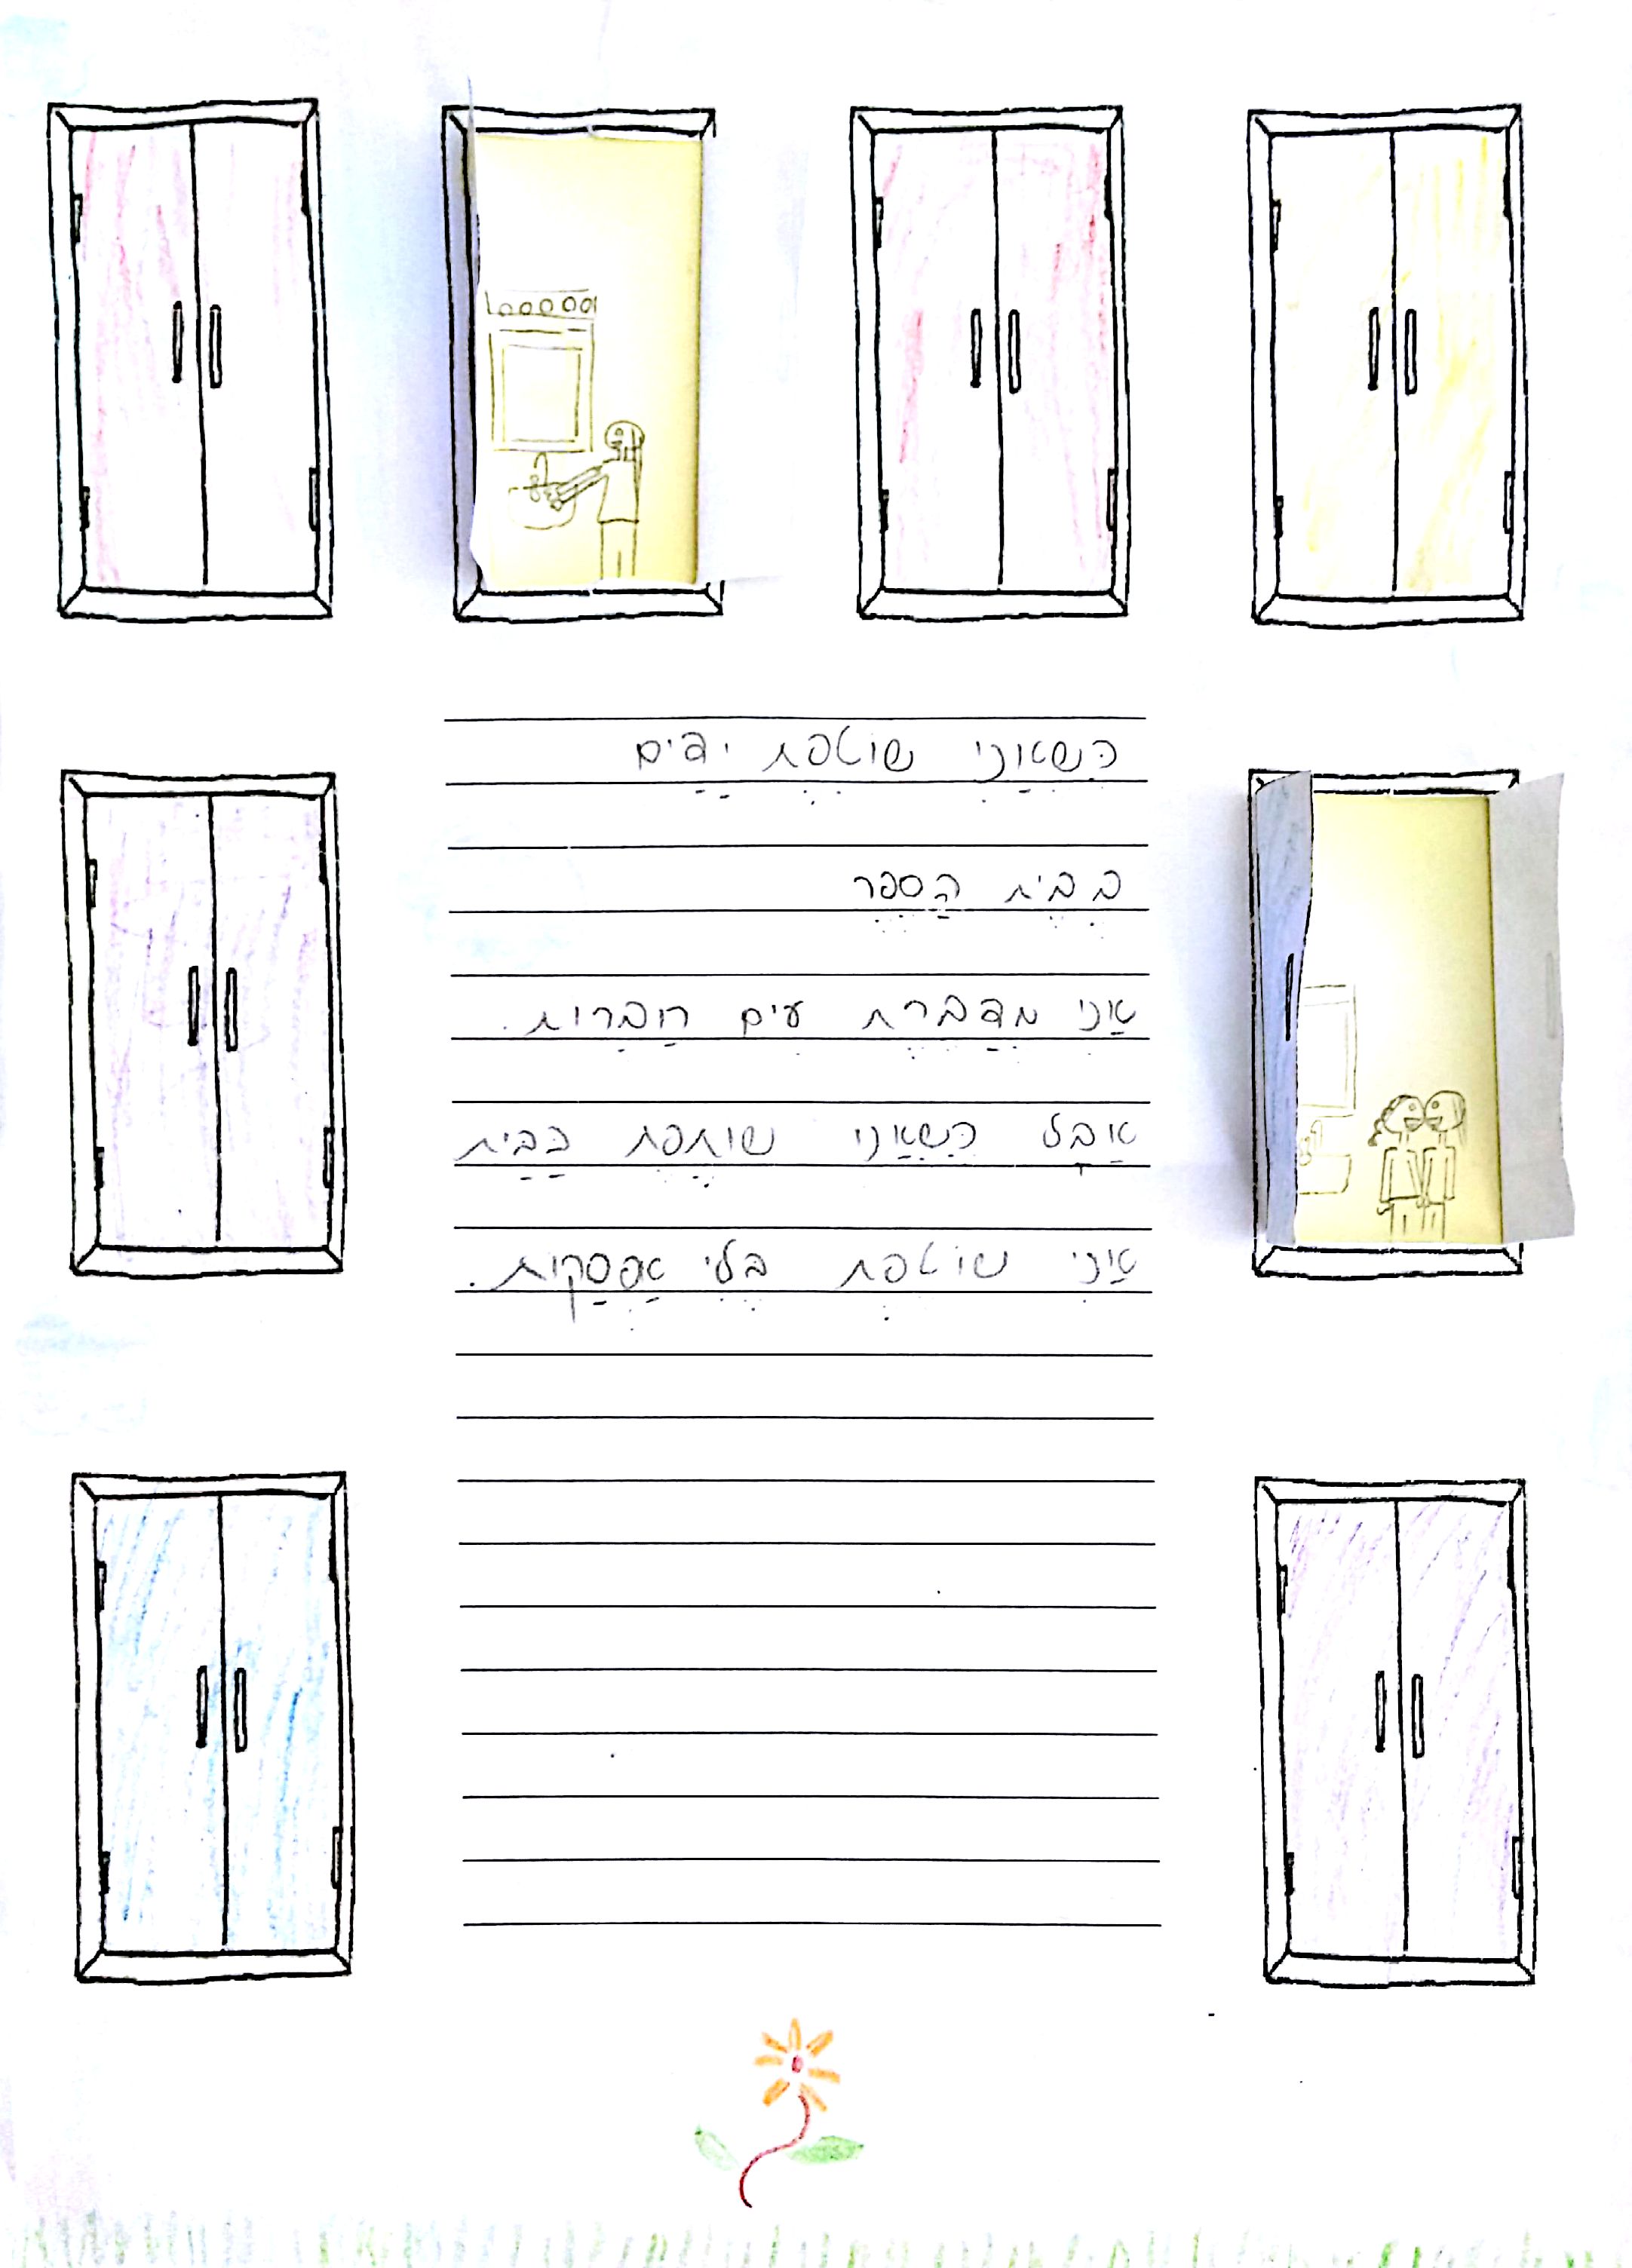 כשאני שוטפת ידים
בבית הספר
אני מדברת עים חברות.
אבל כשאני שותפת בבית
אני שוטפת בלי אפסקות.